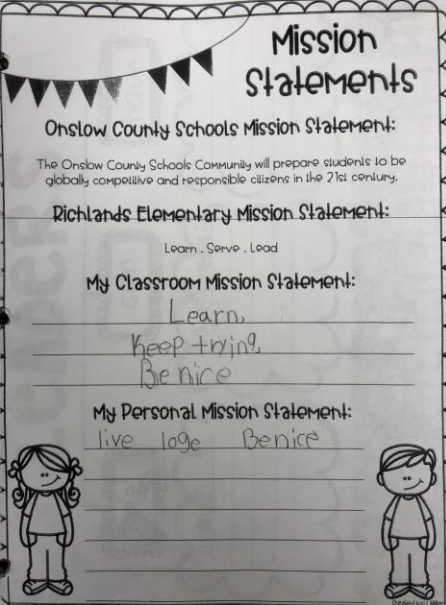 Mission
Statements
Onslow County Schools Mission Statement:
The Onslow County Schools Community will prepare students to be
globally competitive and responsible citizens in the 21st century.
Richlands Elementary Mission Statement:
Learn . Serve . Lead
My Classroom Mission Statement:
Learn,
Keep trying,
Be nice
My Personal Mission Statement:
live loge Be nice